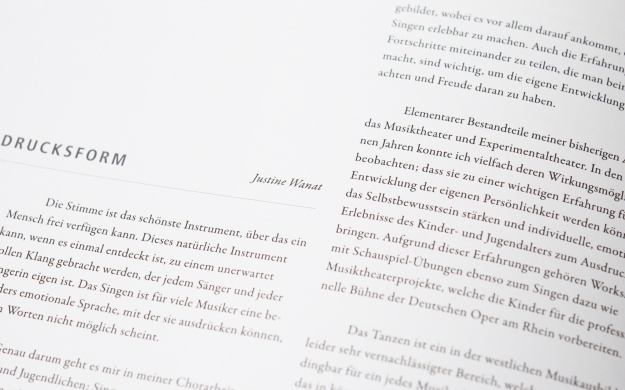 DRUCKSFORM
Justine Wanat
Die Stimme ist das schönste Instrument, über das ein
Mensch frei verfügen kann. Dieses natürliche Instrument
kann, wenn es einmal entdeckt ist, zu einem unerwartet
ollen Klang gebracht werden, der jedem Sänger und jeder
ngerin eigen ist. Das Singen ist für viele Musiker eine be-
ders emotionale Sprache, mit der sie ausdrücken können,
n Worten nicht möglich scheint.
Genau darum geht es mir in meiner Chorarbeit
und Jugendlichen: Sin
gebildet, wobei es vor allem darauf ankommt,
Singen erlebbar zu machen. Auch die Erfahrun
Fortschritte miteinander zu teilen, die man bei
macht, sind wichtig, um die eigene Entwicklung
achten und Freude daran zu haben.
Elementarer Bestandteile meiner bisherigen A
das Musiktheater und Experimentaltheater. In den
nen Jahren konnte ich vielfach deren Wirkungsmögl
beobachten; dass sie zu einer wichtigen Erfahrung f
Entwicklung der eigenen Persönlichkeit werden könn
das Selbstbewusstsein stärken und individuelle, emoti
Erlebnisse des Kinder- und Jugendalters zum Ausdruc
bringen. Aufgrund dieser Erfahrungen gehören Works
mit Schauspiel-Übungen ebenso zum Singen dazu wie
Musiktheaterprojekte, welche die Kinder für die profess
nelle Bühne der Deutschen Oper am Rhein vorbereiten.
Das Tanzen ist ein in der westlichen Musikausbil
leider sehr vernachlässigter Bereich, welch
dingbar für ein jedes Musik
das in kö